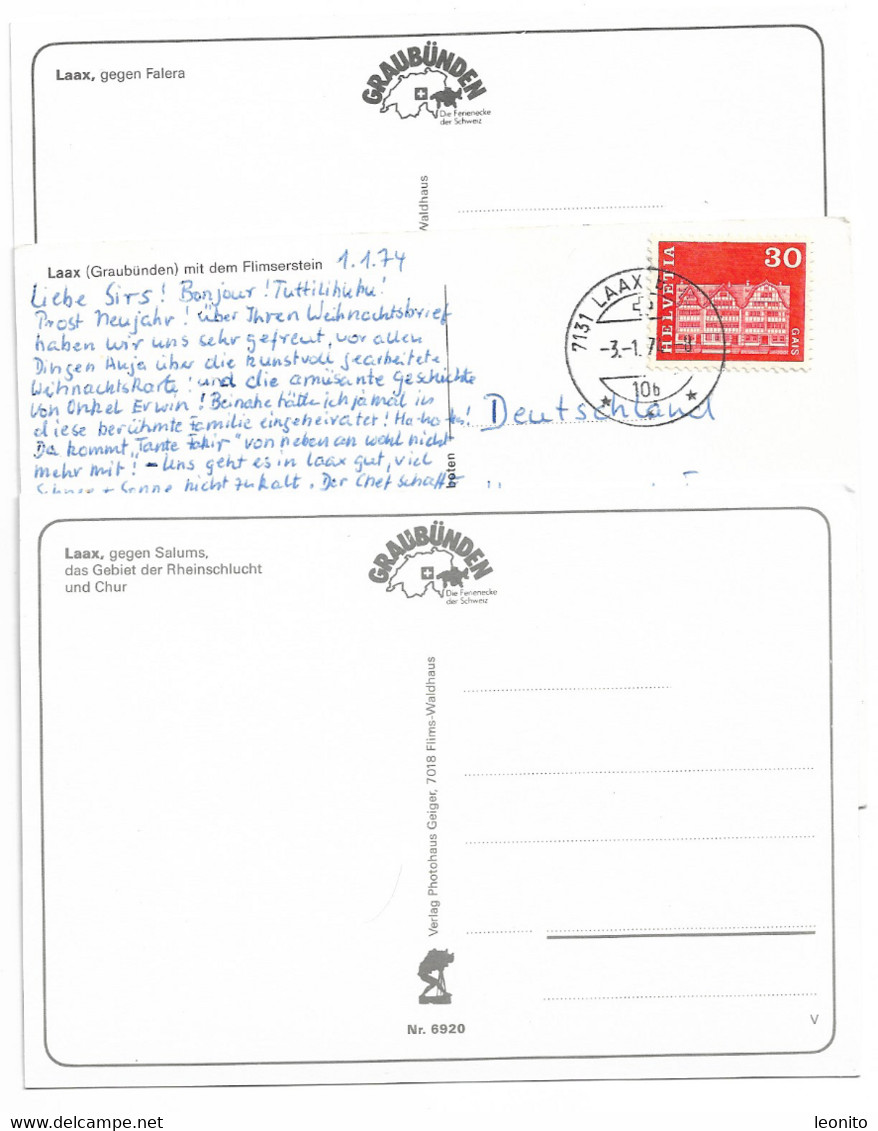 Laax, gegen Falera
GRAUBÜNDEN
Die Ferienecke
der Schweiz
Waldhaus
Laax (Graubünden) mit dem Flimserstein
1.1.74
Liebe Sirs! Bonjour! Tuttilihuhu!
Prost Neujahr! über Ihren Weihnachtsbrief
haben wir uns sehr gefreut, vor allen
Dingen Anja über die kunstvoll gearbeitete
Weihnachtskarte! und die amüsante Geschichte
von Onkel Erwin! Beinahe hätte ich ja mal in
diese berühmte Familie eingeheiratet! Ha-ha-
Da kommt "Tante Fakir" von nebenan wohl nicht
mehr mit! - Uns geht es in Laax gut, viel
Schnee + Sonne nicht zu kalt. Der Chef schafft
boten
7131 LAAX
-3.-1.7
10b
HELVETIA
30
GAIS
Deutschland
Laax, gegen Salums,
das Gebiet der Rheinschlucht
und Chur
GRAUBÜNDEN
Die Ferienecke
der Schweiz
Verlag Photohaus Geiger, 7018 Flims-Waldhaus
Nr. 6920
V
leonito